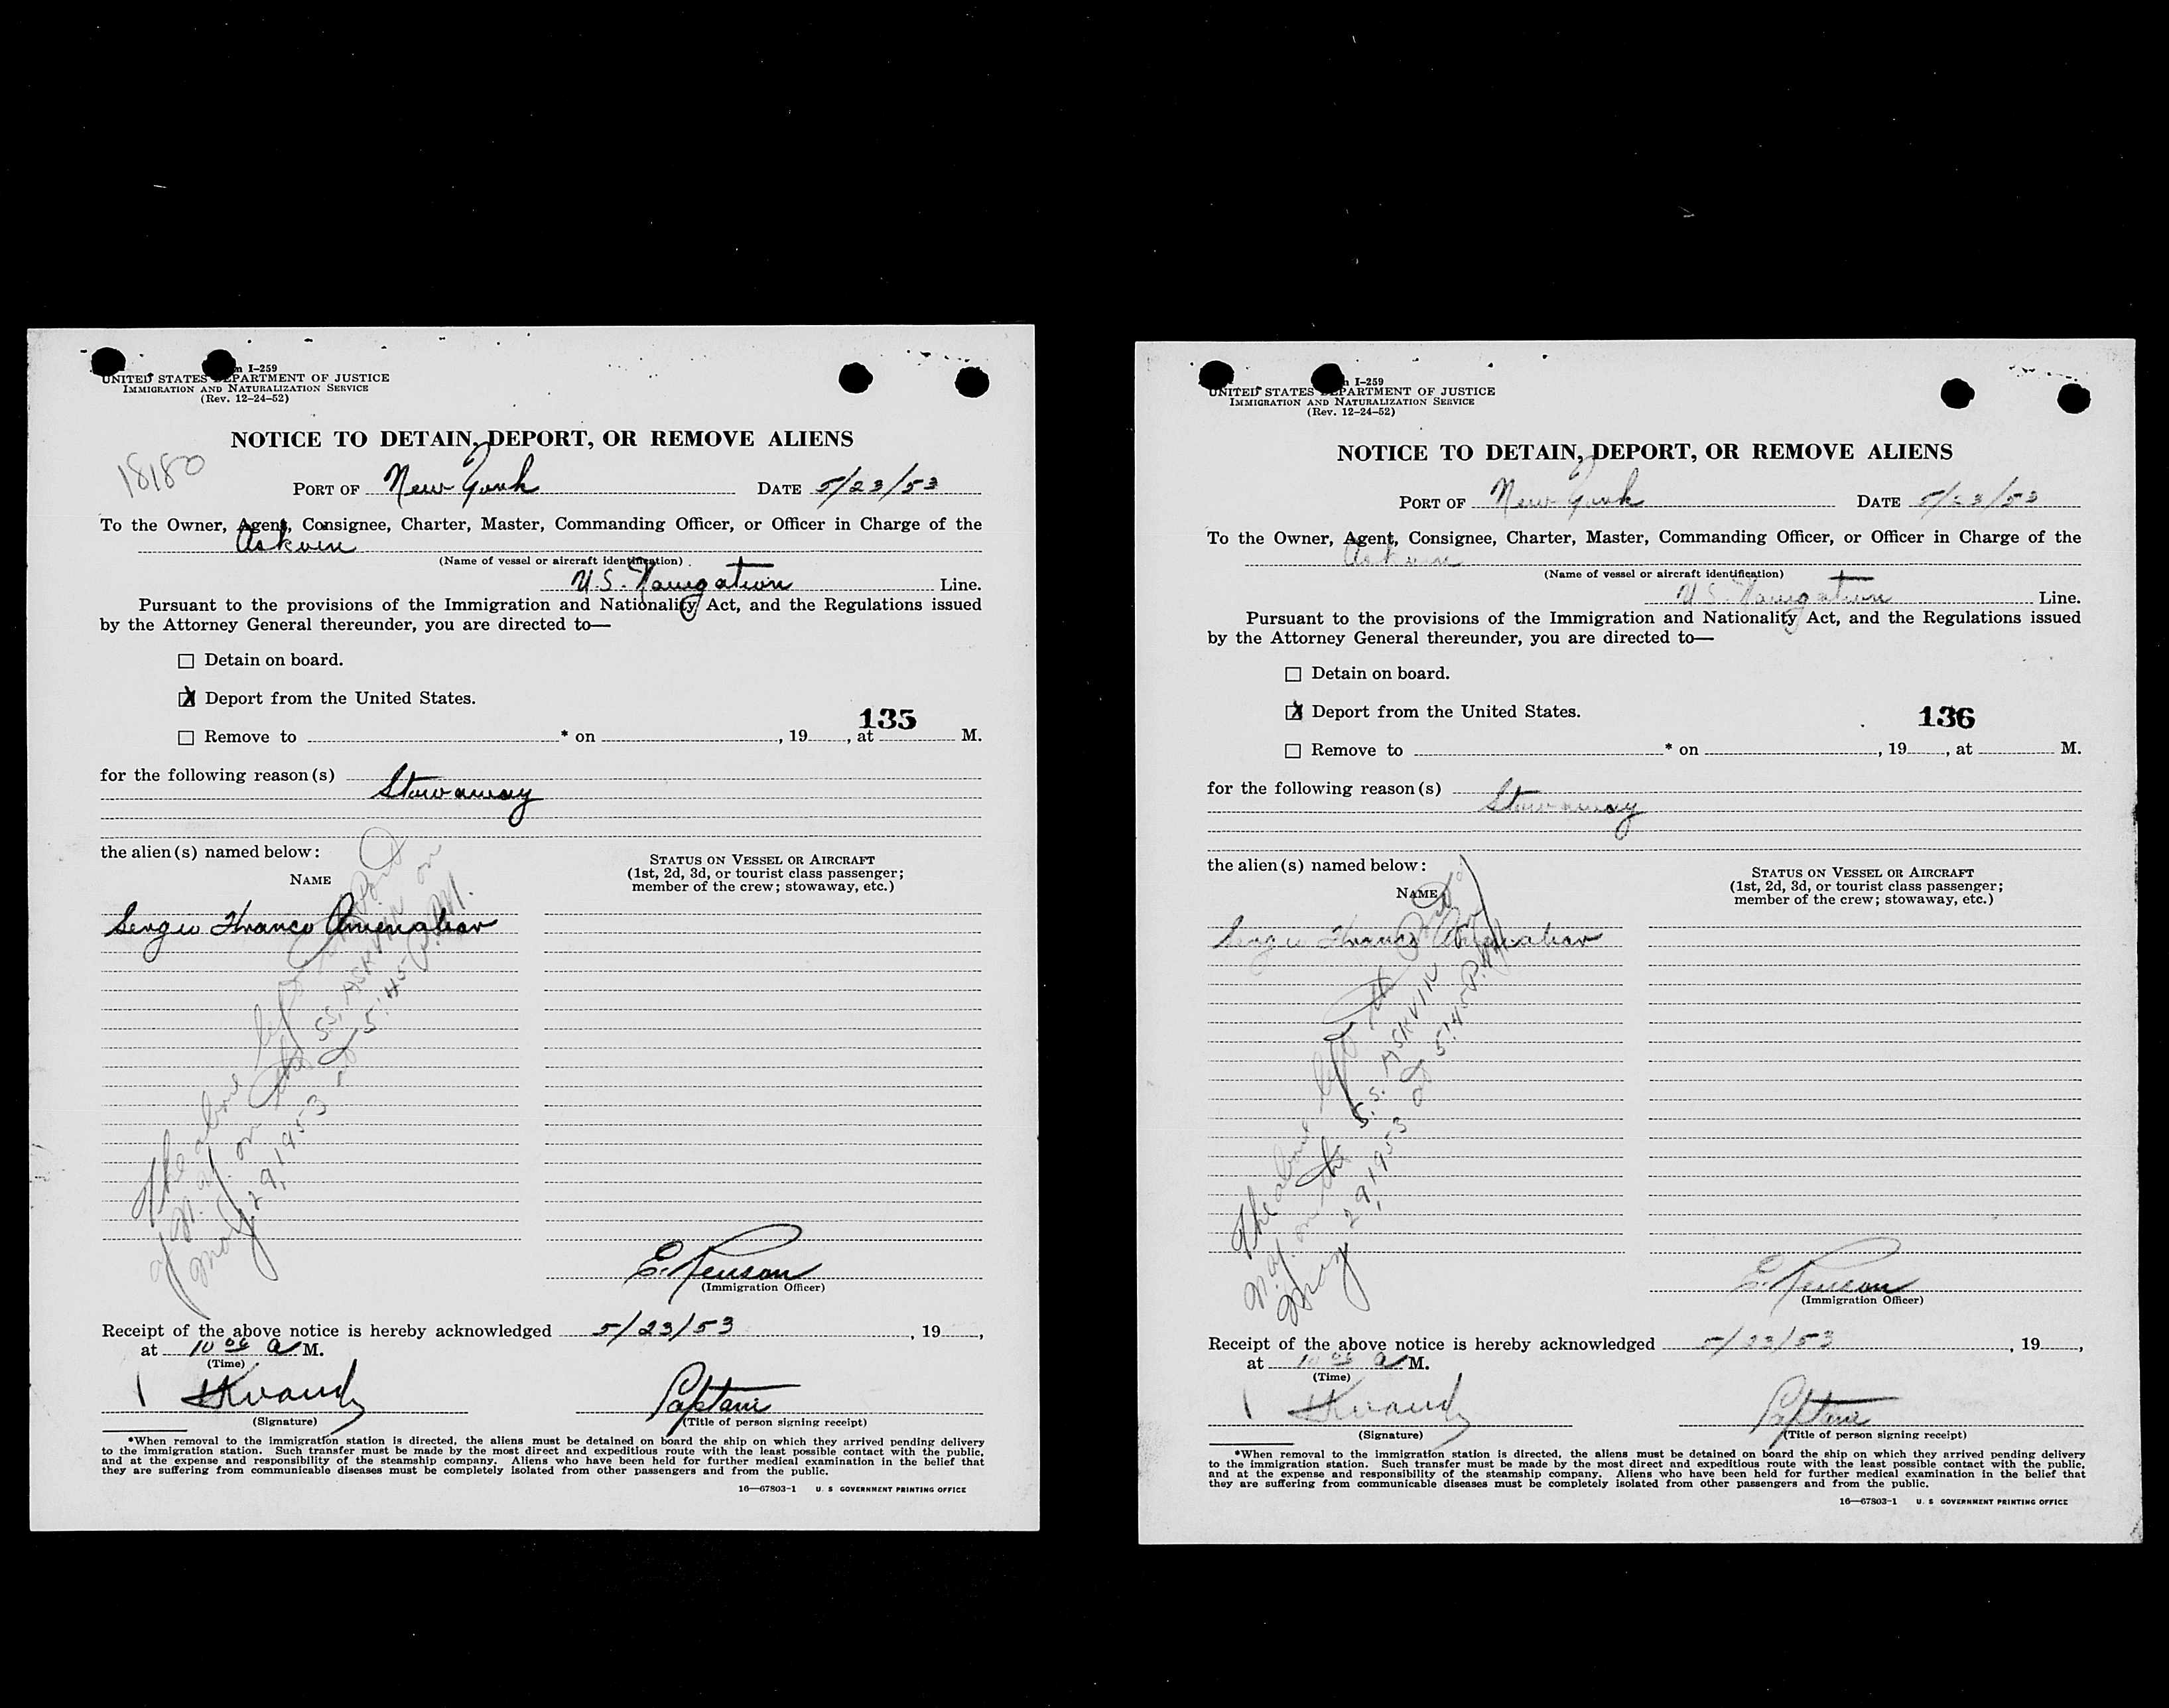 m I-259
UNITED STATES DEPARTMENT OF JUSTICE
IMMIGRATION AND NATURALIZATION SERVICE
(Rev. 12-24-52)
NOTICE TO DETAIN, DEPORT, OR REMOVE ALIENS
18180
PORT OF New York DATE 5/23/53
To the Owner, Agent, Consignee, Charter, Master, Commanding Officer, or Officer in Charge of the
Askvin
(Name of vessel or aircraft identification)
U.S. Navigation Line.
Pursuant to the provisions of the Immigration and Nationality Act, and the Regulations issued
by the Attorney General thereunder, you are directed to—
☐ Detain on board.
☒ Deport from the United States.
135
☐ Remove to * on , 19 , at M.
for the following reason(s)
Stowaway
the alien(s) named below:
NAME
STATUS ON VESSEL OR AIRCRAFT
(1st, 2d, 3d, or tourist class passenger;
member of the crew; stowaway, etc.)
Sergio Franco Amenabar
The above left the Port
of N.Y. on the S.S. ASKVIN on
May 29, 1953 at 5:45 P.M.
E. Renson
(Immigration Officer)
Receipt of the above notice is hereby acknowledged 5/23/53 , 19 ,
at 10 a M.
(Time)
Captain
(Signature)
(Title of person signing receipt)
*When removal to the immigration station is directed, the aliens must be detained on board the ship on which they arrived pending delivery
to the immigration station. Such transfer must be made by the most direct and expeditious route with the least possible contact with the public,
and at the expense and responsibility of the steamship company. Aliens who have been held for further medical examination in the belief that
they are suffering from communicable diseases must be completely isolated from other passengers and from the public.
16—67803-1 U. S. GOVERNMENT PRINTING OFFICE
m I-259
UNITED STATES DEPARTMENT OF JUSTICE
IMMIGRATION AND NATURALIZATION SERVICE
(Rev. 12-24-52)
NOTICE TO DETAIN, DEPORT, OR REMOVE ALIENS
PORT OF New York DATE 5/23/53
To the Owner, Agent, Consignee, Charter, Master, Commanding Officer, or Officer in Charge of the
Askvin
(Name of vessel or aircraft identification)
U.S. Navigation Line.
Pursuant to the provisions of the Immigration and Nationality Act, and the Regulations issued
by the Attorney General thereunder, you are directed to—
☐ Detain on board.
☒ Deport from the United States.
136
☐ Remove to * on , 19 , at M.
for the following reason(s)
Stowaway
the alien(s) named below:
NAME
STATUS ON VESSEL OR AIRCRAFT
(1st, 2d, 3d, or tourist class passenger;
member of the crew; stowaway, etc.)
Sergio Franco Amenabar
The above left the Port of
N.Y. on the S.S. ASKVIN on
May 29, 1953 at 5:45 P.M.
E. Renson
(Immigration Officer)
Receipt of the above notice is hereby acknowledged 5/23/53 , 19 ,
at 10 a M.
(Time)
Captain
(Signature)
(Title of person signing receipt)
*When removal to the immigration station is directed, the aliens must be detained on board the ship on which they arrived pending delivery
to the immigration station. Such transfer must be made by the most direct and expeditious route with the least possible contact with the public,
and at the expense and responsibility of the steamship company. Aliens who have been held for further medical examination in the belief that
they are suffering from communicable diseases must be completely isolated from other passengers and from the public.
16—67803-1 U. S. GOVERNMENT PRINTING OFFICE